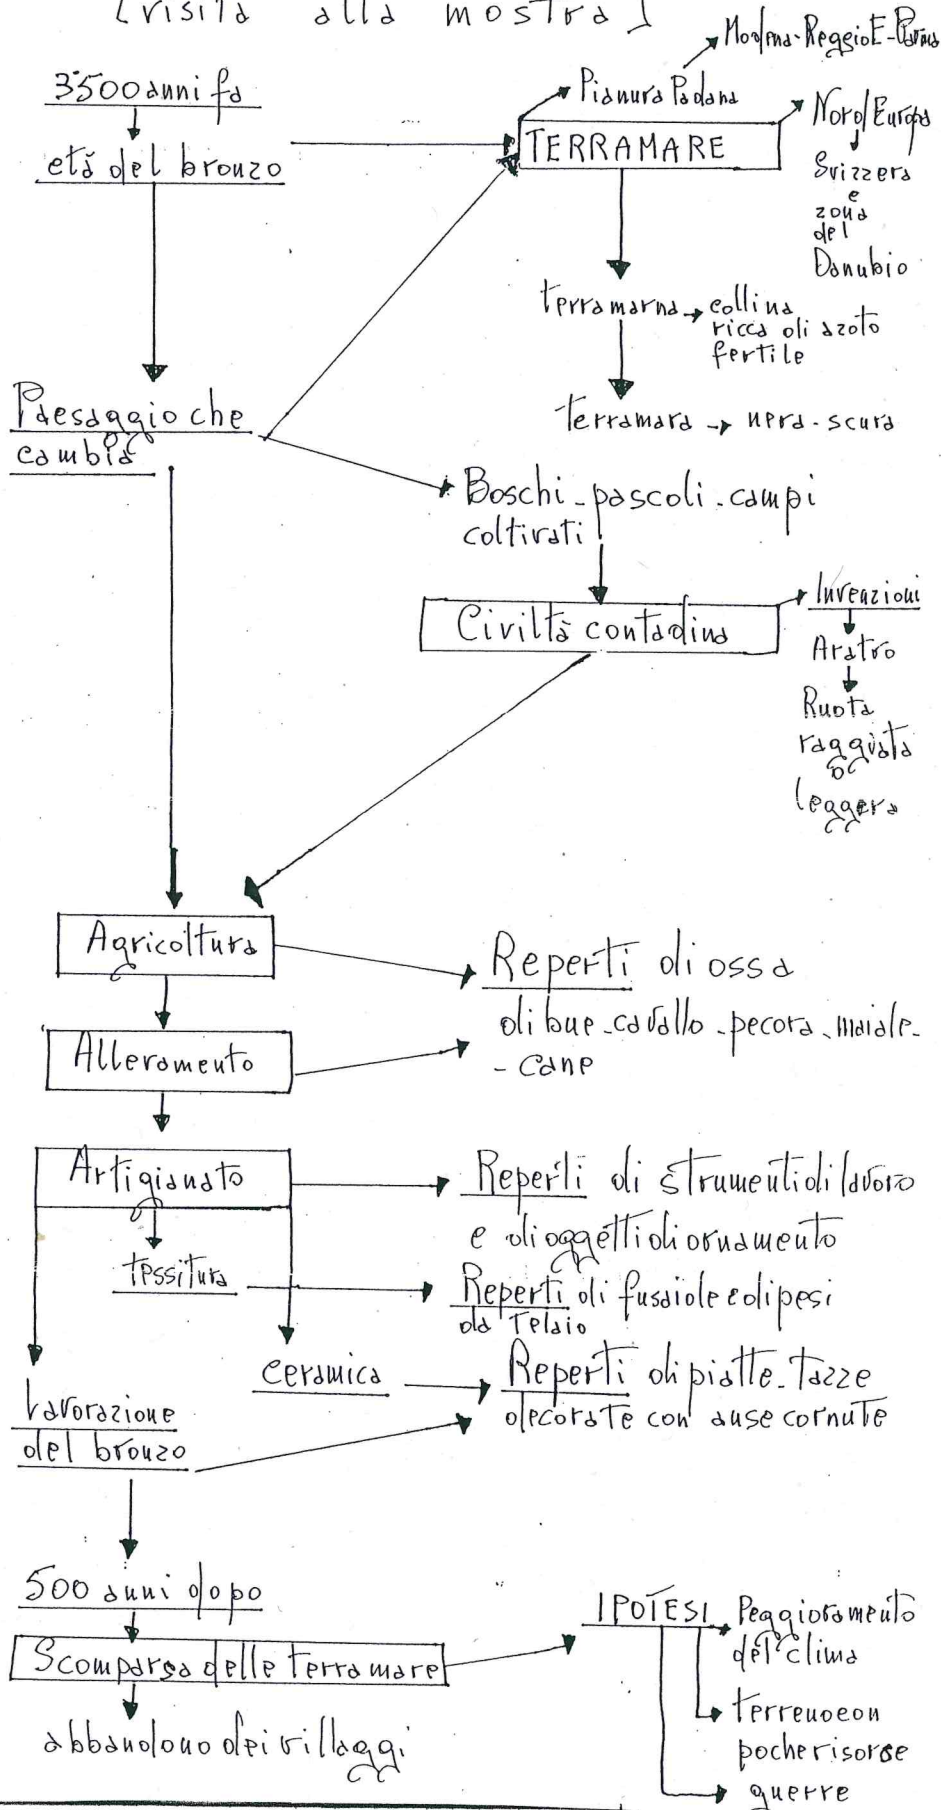 (visita alla mostra)
3500 anni fa
età del bronzo
Modena-Reggio E-Parma
Pianura Padana
TERRAMARE
Nord Europa
Svizzera
e
zona
del
Danubio
terramarna → collina
ricca di azoto
fertile
terramara → nera-scura
Paesaggio che
cambia
Boschi-pascoli-campi
coltivati
Civiltà contadina
Invenzioni
Aratro
Ruota
raggiata
leggera
Agricoltura
Reperti di ossa
di bue-cavallo-pecora-maiale-
-cane
Allevamento
Artigianato
Reperti di strumenti di lavoro
e di oggetti di ornamento
tessitura
Reperti di fusaiole e di pesi
da telaio
ceramica
Reperti di piatte-tazze
decorate con anse cornute
Lavorazione
del bronzo
500 anni dopo
Scomparsa delle terramare
abbandono dei villaggi
IPOTESI
Peggioramento
del clima
terreno con
poche risorse
guerre